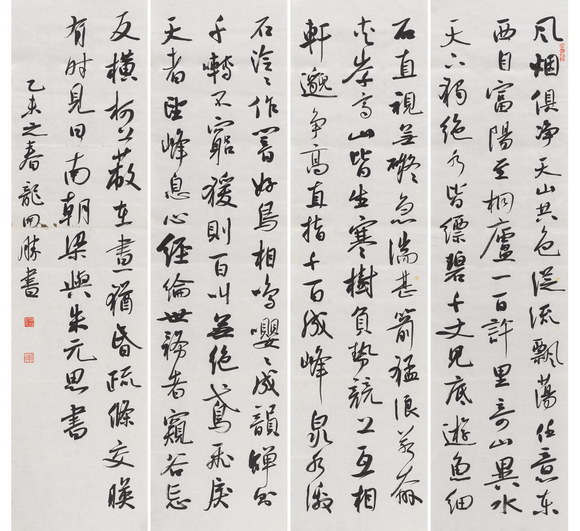 风烟俱净天山共色從流飄蕩任意东
西自富陽至桐廬一百許里奇山異水
天下獨絶水皆縹碧千丈見底遊魚細
石直視無礙急湍甚箭猛浪若奔
夾岸高山皆生寒樹負勢競上互相
軒邈争高直指千百成峰泉水激
石泠々作響好鳥相鳴嚶々成韻蟬則
千轉不窮猨則百叫無絶鳶飛戾
天者望峰息心經綸世務者窺谷忘
反横柯上蔽在晝猶昏疏條交映
有时見日南朝梁與朱元思書
乙未之春龍勝書